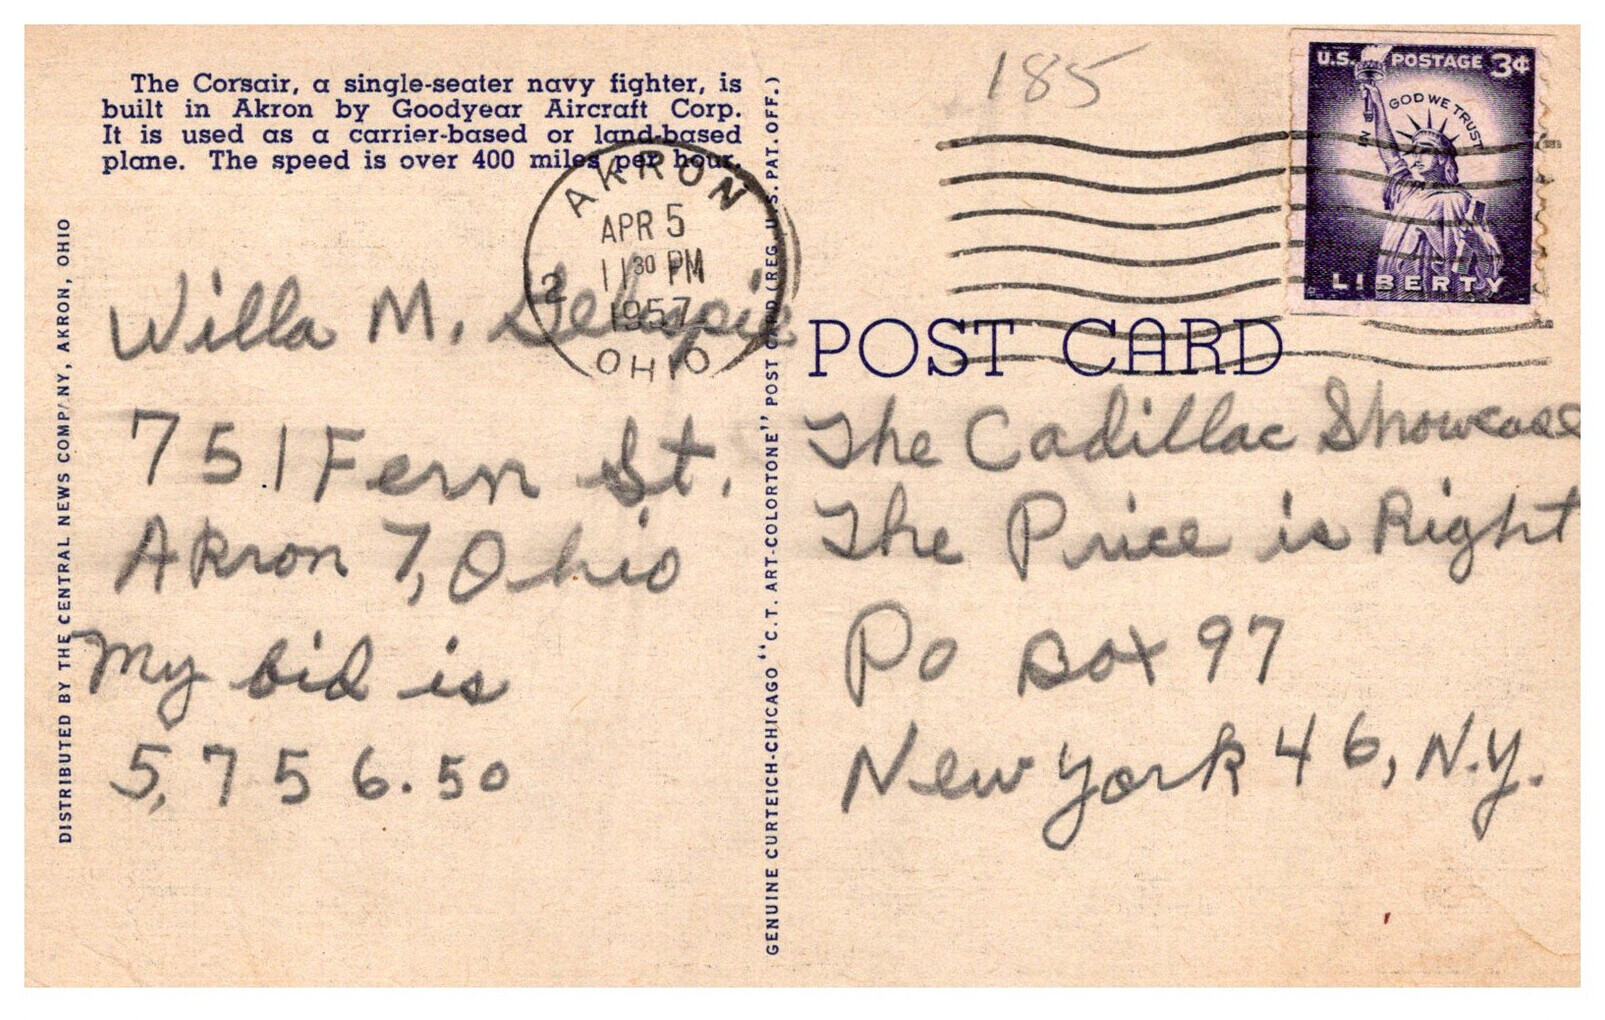 The Corsair, a single-seater navy fighter, is
built in Akron by Goodyear Aircraft Corp.
It is used as a carrier-based or land-based
plane. The speed is over 400 miles per hour.
DISTRIBUTED BY THE CENTRAL NEWS COMPANY, AKRON, OHIO
AKRON
APR 5
11 30 PM
1957
2
OHIO
Willa M.
751 Fern St.
Akron 7, Ohio
My bid is
5,756.50
GENUINE CURTEICH-CHICAGO "C.T. ART-COLORTONE" POST CARD (REG. U.S. PAT. OFF.)
185
U.S. POSTAGE 3¢
IN GOD WE TRUST
LIBERTY
POST CARD
The Cadillac Showcase
The Price is Right
Po Box 97
New York 46, N.Y.